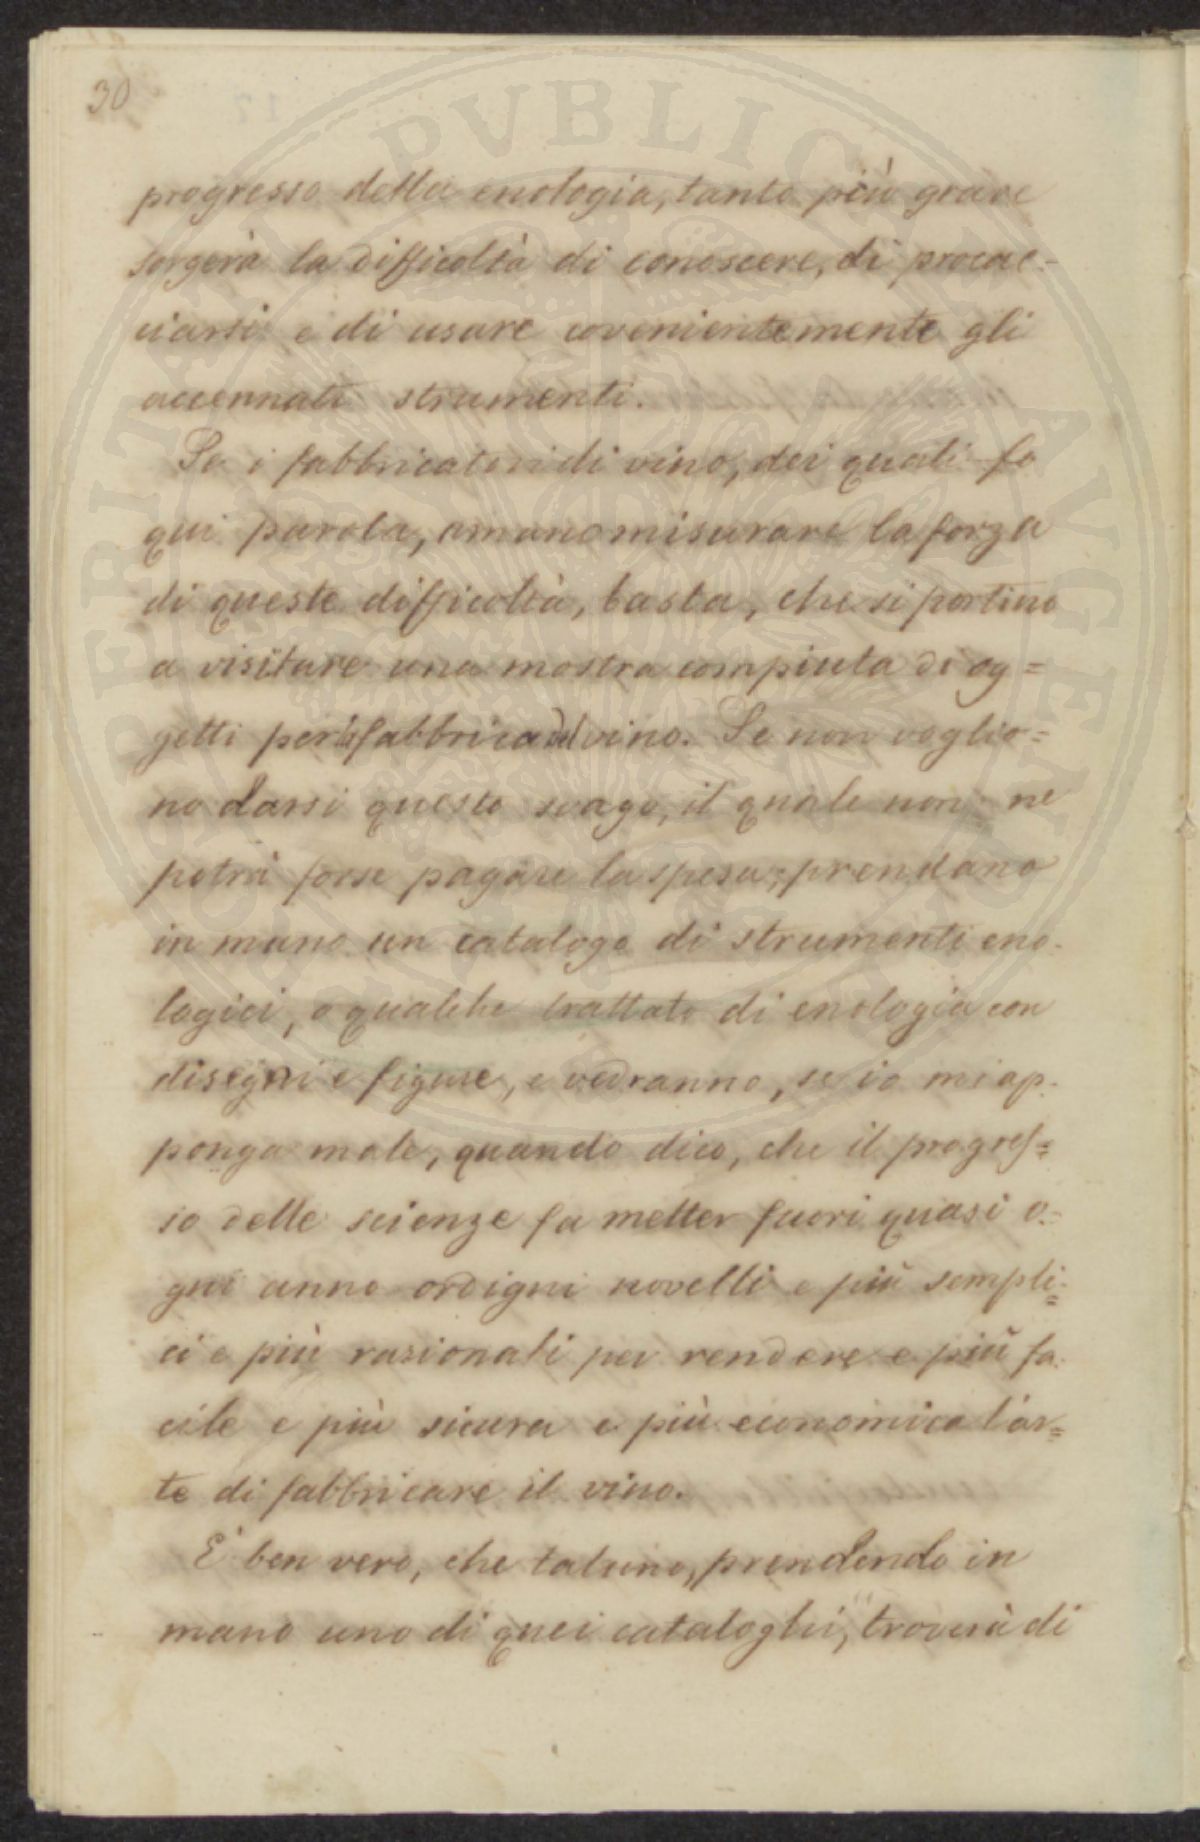 30
progresso della enologia, tanto più grave
sorgerà la difficoltà di conoscere, di procac-
ciarsi e di usare covenientemente gli
accennati strumenti.
Se i fabbricatori di vino, dei quali fo
qui parola, amano misurare la forza
di queste difficoltà, basta, che si portino
a visitare una mostra compiuta di og=
getti per fabbricar vino. Se non voglio=
no darsi questo svago, il quale non ne
potrà forse pagare la spesa; prendano
in mano un catalogo di strumenti eno-
logici, o qualche trattato di enologia con
disegni e figure, e vedranno, se io mi ap-
ponga male, quando dico, che il progres=
so delle scienze fa metter fuori quasi o=
gni anno ordigni novelli e più sempli=
ci e più razionali per rendere e più fa-
cile e più sicura e più economica l'ar=
te di fabbricare il vino.
E' ben vero, che taluno, prendendo in
mano uno di quei cataloghi, troverà di